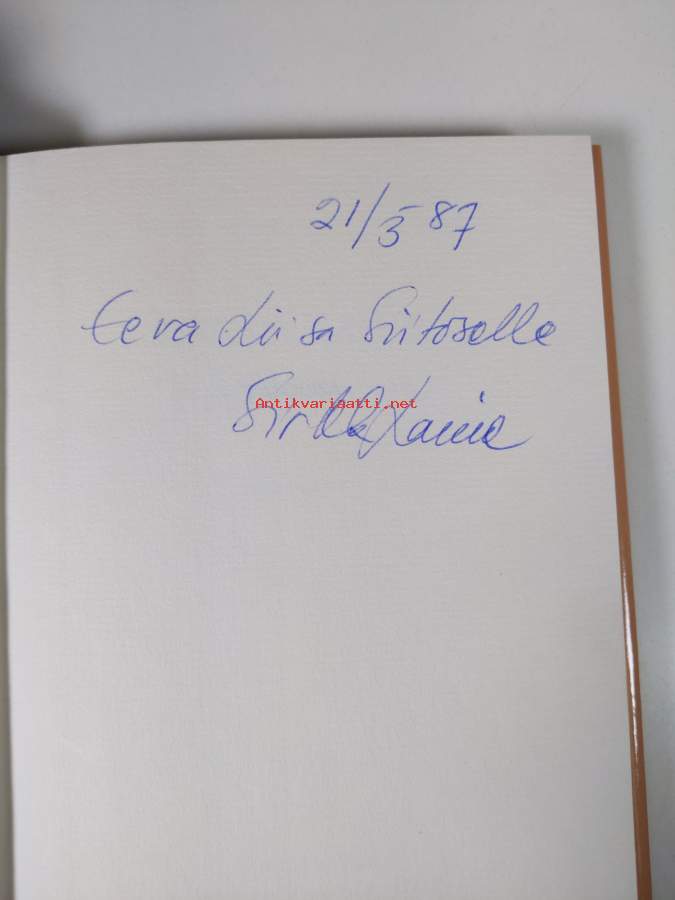 21/5 87
Eeva Liisa Siitoselle
Antikvariaatti.net
Sirkka Laine